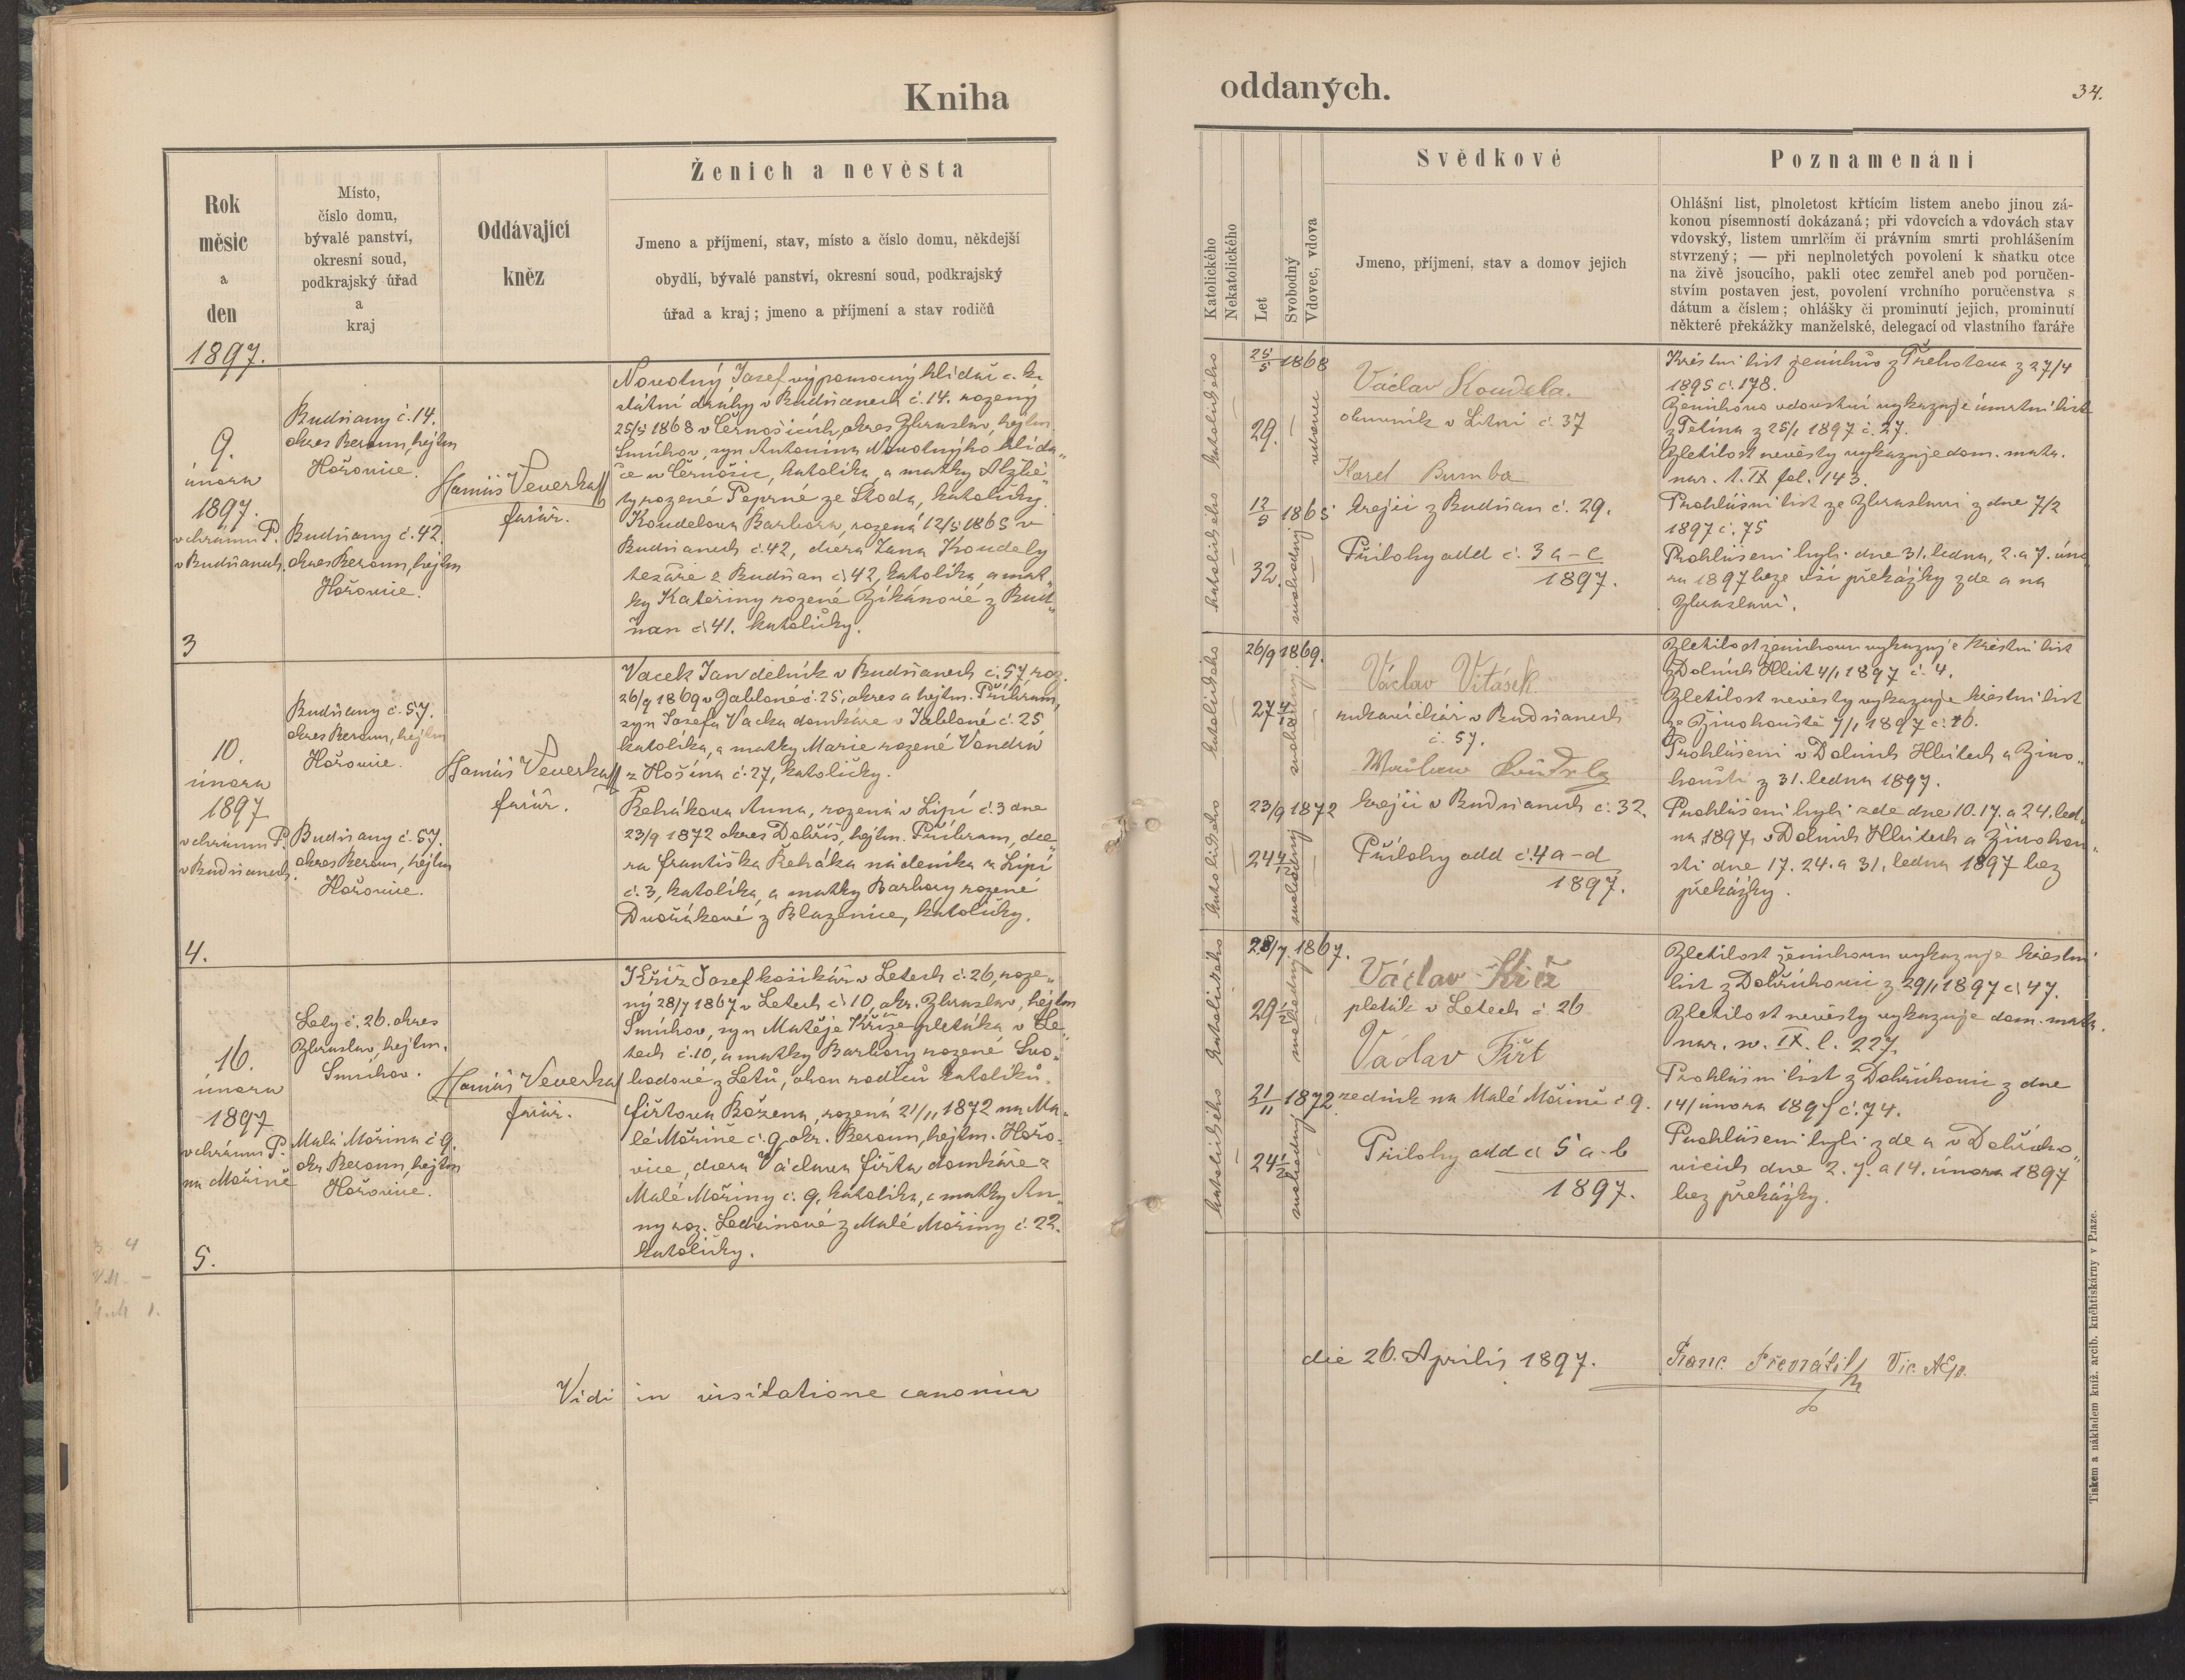 Kniha
Rok
měsíc
a
den
1897.
Místo,
číslo domu,
bývalé panství,
okresní soud,
podkrajský úřad
a
kraj
Oddávající
kněz
Ženich a nevěsta
Jmeno a příjmení, stav, místo a číslo domu, někdejší
obydlí, bývalé panství, okresní soud, podkrajský
úřad a kraj; jmeno a příjmení a stav rodičů
9.
února
1897.
v chrámu P.
v Budňanech.
3
Budňany č. 14.
okres Beroun, hejtm
Hořovice.
Budňany č. 42.
okres Beroun, hejtm
Hořovice.
Veverka
farář.
Novotný Josef výpomocný hlídač c. k.
státní dráhy v Budňanech č. 14. rozený
25/5 1868 v Černošicích, okres Zbraslav, hejtm.
Smíchov, syn Antonína Novotnýho hlída„
če v Černošic, katolíka, a matky Alžbě„
ty rozené Peprné ze Škoda, katoličky.
Koudelova Barbora, rozená 12/5 1865 v
Budňanech č. 42, dcera Jana Koudely
tesaře z Budňan č. 42, katolíka, a mat„
ky Kateřiny rozené Zikánové z Bud„
ňan č. 41. katoličky.
10.
února
1897
v chrámu P.
v Budňanech.
4.
Budňany č. 57.
okres Beroun, hejtm
Hořovice.
Budňany č. 57.
okres Beroun, hejtm
Hořovice.
Veverka
farář.
Vacek Jan dělník v Budňanech č. 57, roz.
26/9 1869 v Jabloné č. 25, okres a hejtm. Příbram,
syn Josefa Vacka domkáře v Jabloné č. 25
katolíka, a matky Marie rozené Vondrů
z Hošína č. 27, katoličky.
Řehákova Anna, rozená v Lipí č. 3 dne
23/9 1872 okres Dobříš, hejtm. Příbram, dce„
ra Františka Řeháka nádeníka z Lipí
č. 3, katolíka, a matky Barbory rozené
Dvořákové z Blazenice, katoličky.
16.
února
1897
v chrámu P.
na Mořině
5.
Lety č. 26. okres
Zbraslav, hejtm.
Smíchov.
Malá Mořina č 9.
okr Beroun, hejtm
Hořovice.
Veverka
farář.
Kříž Josef košikář v Letech č. 26, roze„
ný 28/7 1867 v Letech č. 10, okr. Zbraslav, hejtm
Smíchov, syn Matěje Kříže pletáka v Le„
tech č. 10, a matky Barbory rozené Svo„
bodové z Letů, obou rodičů katolíků.
Fiřtova Božena, rozená 21/11 1872 na Ma„
lé Mořině č. 9, okr. Beroun, hejtm. Hořo„
vice, dcera Václava Fiřta domkáře z
Malé Mořiny č. 9, katolíka, a matky An„
ny roz. Ledvinové z Malé Mořiny č. 22.
katoličky.
Vidi in visitatione canonica
oddaných.
34.
Katolického
Nekatolického
Let
Svobodný
Vdovec, vdova
Svědkové
Jmeno, příjmení, stav a domov jejich
Poznamenání
Ohlášní list, plnoletost křtícím listem anebo jinou zá-
konou písemností dokázaná; při vdovcích a vdovách stav
vdovský, listem umrlčím či právním smrti prohlášením
stvrzený; — při neplnoletých povolení k sňatku otce
na živě jsoucího, pakli otec zemřel aneb pod poručen-
stvím postaven jest, povolení vrchního poručenstva s
dátum a číslem; ohlášky či prominutí jejich, prominutí
některé překážky manželské, delegací od vlastního faráře
katolického
katolického
25/5 1868
29.
vdovec
12/5 1865
32.
svobodný
Václav Koudela.
obuvník v Litni č. 37
Karel Bumba
krejčí z Budňan č. 29.
Přílohy add č. 3 a-c
1897.
Křestní list ženichův z Třebotova z 27/4
1895 č. 178.
Ženichovo vdovství vykazuje úmrtní list
z Tetína z 25/1 1897 č. 27.
Zletilost nevěsty vykazuje dom. matr.
nar. 1. IX fol. 143.
Prohlášní list ze Zbraslavi z dne 7/2
1897 č. 75
Prohlášeni byli dne 31. ledna, 2. a 7. úno
ra 1897 beze vší překážky zde a na
Zbraslavi.
katolického
katolického
26/9 1869.
27 4/12
svobodný
23/9 1872
24 4/12
svobodný
Václav Vitásek
rukavičkář v Budňanech
č. 57.
krejčí v Budňanech č. 32.
Přílohy add č. 4 a-d
1897.
Zletilost ženichovu vykazuje křestní list
z Dolních Hbit 4/1 1897 č. 4.
Zletilost nevěsty vykazuje křestní list
ze Živohouště 7/1 1897 č. 16.
Prohlášení v Dolních Hbitech a Živo„
houšti z 31. ledna 1897.
Prohlášeni byli zde dne 10. 17. a 24. led„
na 1897, v Dolních Hbitech a Živohou„
šti dne 17. 24. a 31. ledna 1897 bez
překážky.
katolického
katolického
28/7 1867.
29 1/2
svobodný
21/11 1872
24 1/2
svobodný
Václav Kříž
pleták v Letech č. 26
Václav Fiřt
zedník na Malé Mořině č 9.
Přílohy add č 5 a-b
1897.
Zletilost ženichovu vykazuje křestní
list z Dobřichovic z 29/1 1897 č. 47.
Zletilost nevěsty vykazuje dom. matr.
nar. sv. IX. l. 227.
Prohlášní list z Dobřichovic z dne
14/ února 1897 č. 74.
Prohlášeni byli zde a v Dobřicho„
vicích dne 2. 7. a 14. února 1897
bez překážky.
die 26. Aprilis 1897.
Franc. Převrátil Vic. AEp.
Tiskem a nákladem kníž. arcib. knihtiskárny v Praze.